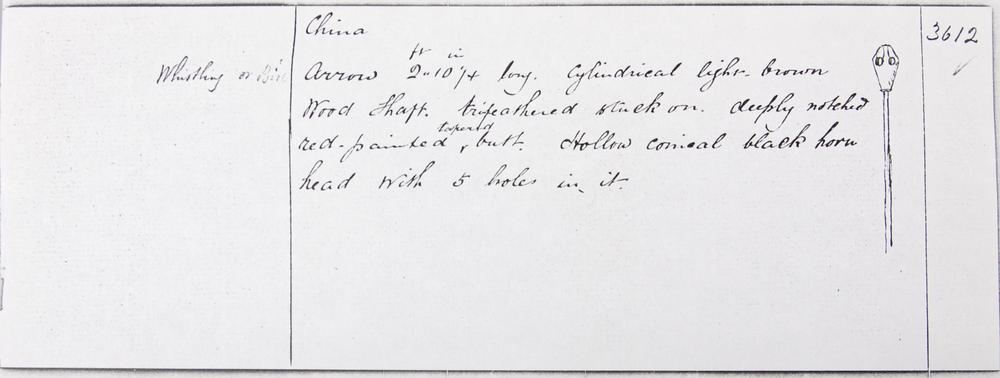 China
3612
Whistling or
ft in
Arrow 2"10 1/4 long. Cylindrical light-brown
Wood Shaft. trifeathered stuck on. deeply notched
tapered
red-painted, butt. Hollow conical black horn
head with 5 holes in it.